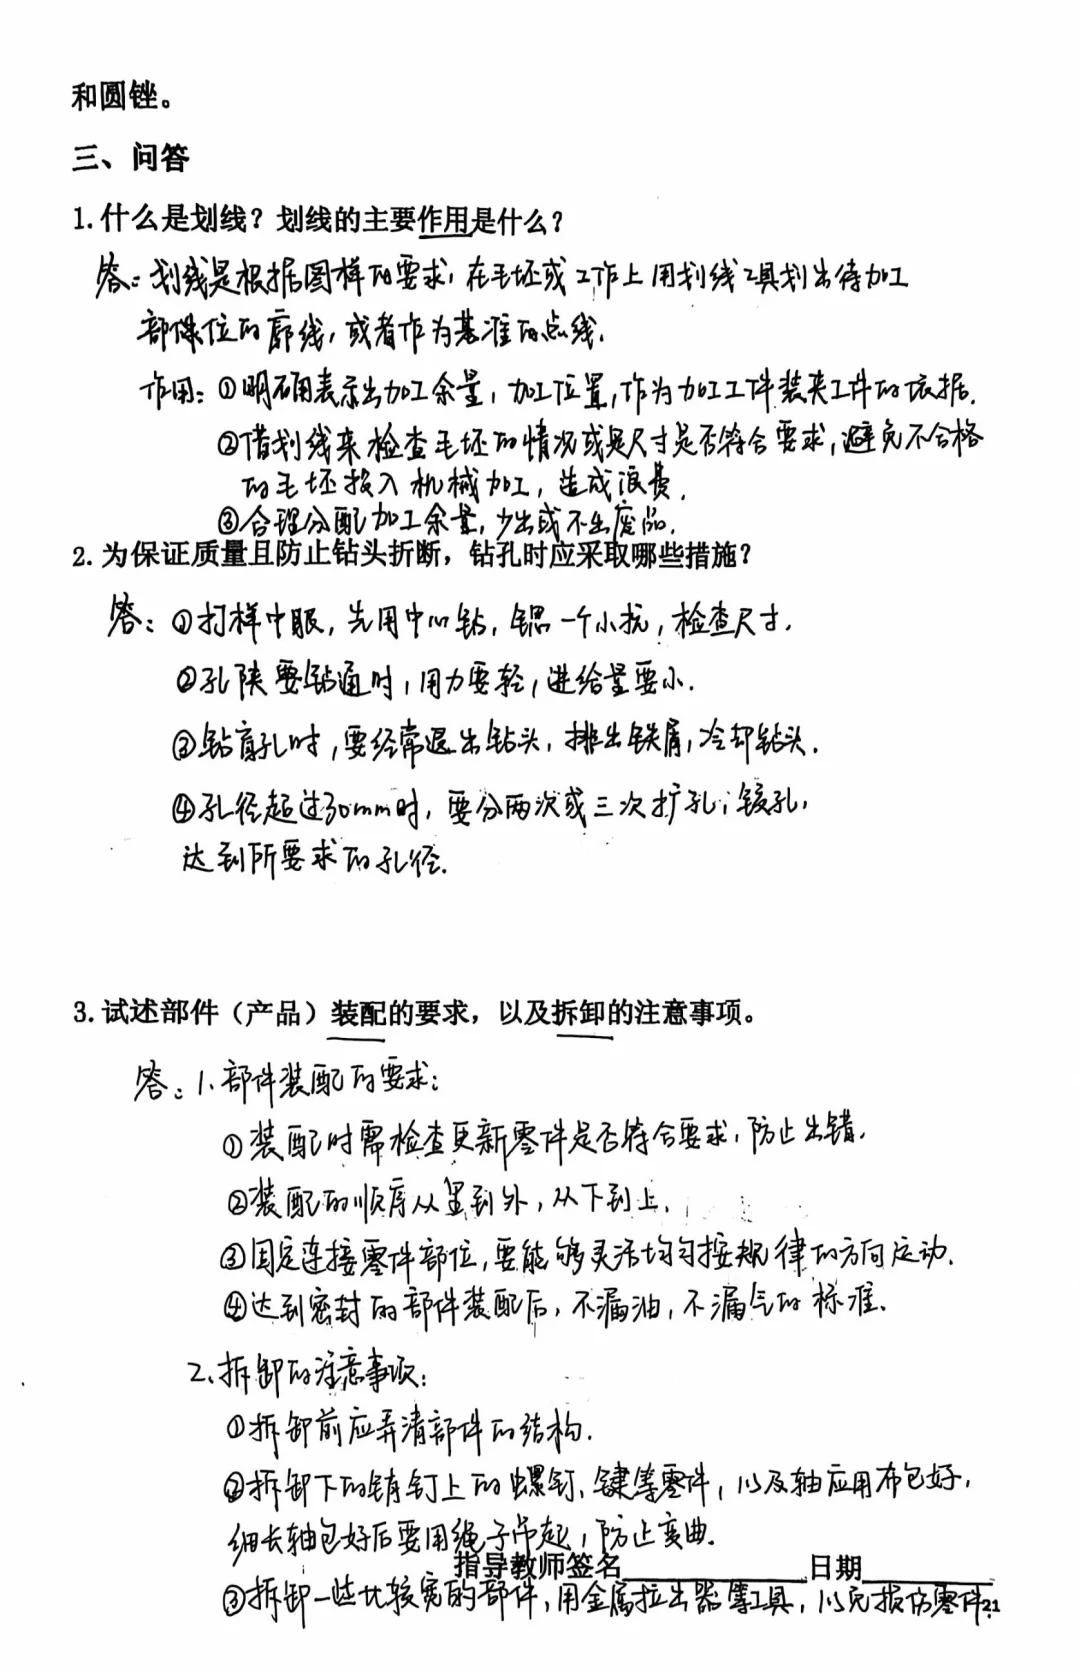 和圆锉。
三、问答
1.什么是划线？划线的主要作用是什么？
答：划线是根据图样的要求，在毛坯或工作上用划线工具划出待加工
部位的廓线，或者作为基准的点线.
作用：①明确表示出加工余量，加工位置，作为加工工件装夹工件的依据.
②借划线来检查毛坯的情况或是尺寸是否符合要求，避免不合格
的毛坯投入机械加工，造成浪费.
③合理分配加工余量，少出或不出废品.
2.为保证质量且防止钻头折断，钻孔时应采取哪些措施？
答：①打样中眼，先用中心钻，锪一个小坑，检查尺寸.
②孔快要钻通时，用力要轻，进给量要小.
③钻盲孔时，要经常退出钻头，排出铁屑，冷却钻头.
④孔径超过30mm时，要分两次或三次扩孔；铰孔，
达到所要求的孔径.
3.试述部件（产品）装配的要求，以及拆卸的注意事项。
答：1、部件装配的要求：
①装配时需检查更新零件是否符合要求，防止出错.
②装配的顺序从里到外，从下到上.
③固定连接零件部位，要能够灵活均匀按规律的方向运动.
④达到密封的部件装配后，不漏油，不漏气的标准.
2、拆卸的注意事项：
①拆卸前应弄清部件的结构.
②拆卸下的销钉上的螺钉、键等零件，以及轴应用布包好，
细长轴包好后要用绳子吊起，防止弯曲.
指导教师签名____________日期__________
③拆卸一些比较宽的部件，用金属拉出器等工具，以免损伤零件.
21